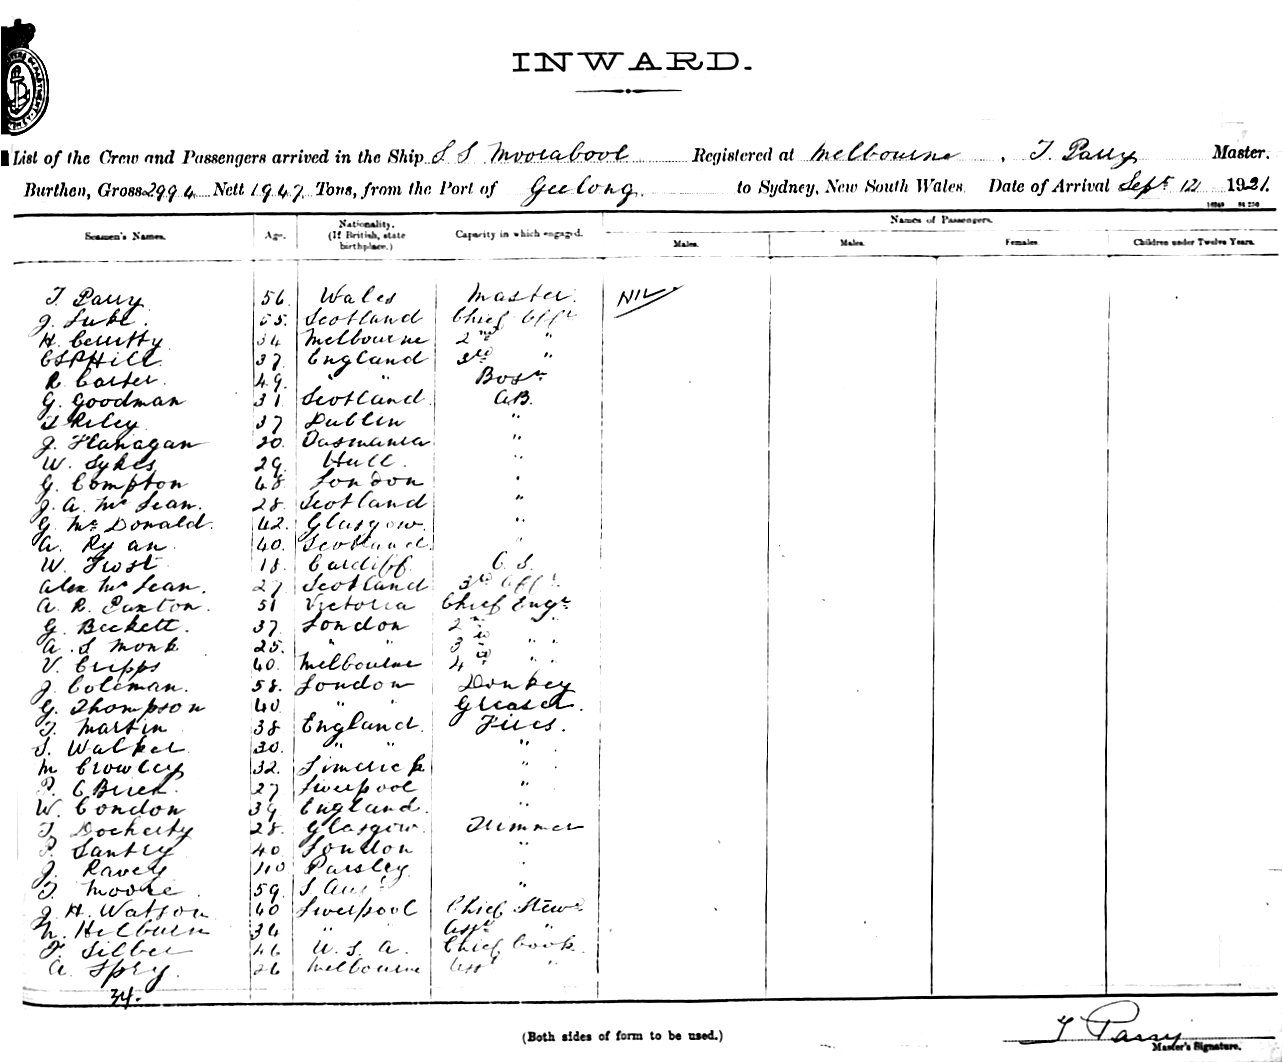 INWARD.
List of the Crew and Passengers arrived in the Ship S S Moorabool Registered at Melbourne, T Parry Master.
Burthen, Gross 2994 Nett 1947 Tons, from the Port of Geelong. to Sydney, New South Wales. Date of Arrival Sept 12 1921.
Seamen's Names. Age. Nationality. (If British, state birthplace.) Capacity in which engaged. Names of Passengers.
Males. Males. Females. Children under Twelve Years.
T. Parry 56 Wales Master. NIL
J. Luke. 55. Scotland Chief Offr
H. Cerutty 34 Melbourne 2nd "
C S P Hill 37 England 3rd "
R Carter. 49. " " Bosn
G. Goodman 31 Scotland. A.B.
T Riley 37 Dublin "
J. Flanagan 20. Tasmania "
W. Sykes 29 Hull. "
G. Compton 48 London "
J. A. Mc Lean. 28 Scotland "
G Mc Donald. 42. Glasgow. "
A. Ryan 40. Scotland. "
W. Frost 18. Cardiff O. S.
Alex Mc Lean. 27 Scotland 3rd Offr.
A. R. Paxton. 51 Victoria Chief Engr
G. Beckett. 37. London 2nd "
A. S Monk 25. " " 3rd " "
V. Cripps 40. Melbourne 4th " "
J. Coleman. 58. London Donkey
G. Thompson 40 " " Greaser.
T. Martin 38 England. Fires.
S. Walker 30. " " "
M Crowley 32. Limerick "
P. C Birch. 27 Liverpool "
W. Condon 39 England. "
T Docherty 28. Glasgow. Trimmer
P. Santry 40 London "
J. Ravey 40 Paisley "
T. Moore 59. S. Aus. "
J. H. Watson 40 Liverpool Chief Stewd
N. Hilburn 34 " " Asst "
F. Silber 46 U. S. A. Chief Cook
A. Spry. 26 Melbourne Asst "
34.
(Both sides of form to be used.)
T Parry
Master's Signature.